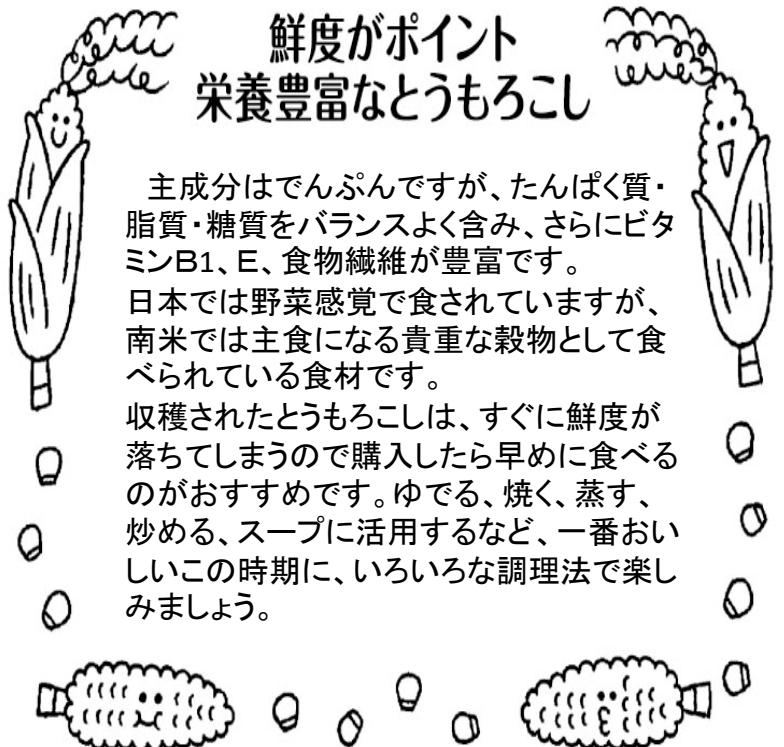 鮮度がポイント
栄養豊富なとうもろこし
主成分はでんぷんですが、たんぱく質・
脂質・糖質をバランスよく含み、さらにビタ
ミンB1、E、食物繊維が豊富です。
日本では野菜感覚で食されていますが、
南米では主食になる貴重な穀物として食
べられている食材です。
収穫されたとうもろこしは、すぐに鮮度が
落ちてしまうので購入したら早めに食べる
のがおすすめです。ゆでる、焼く、蒸す、
炒める、スープに活用するなど、一番おい
しいこの時期に、いろいろな調理法で楽し
みましょう。